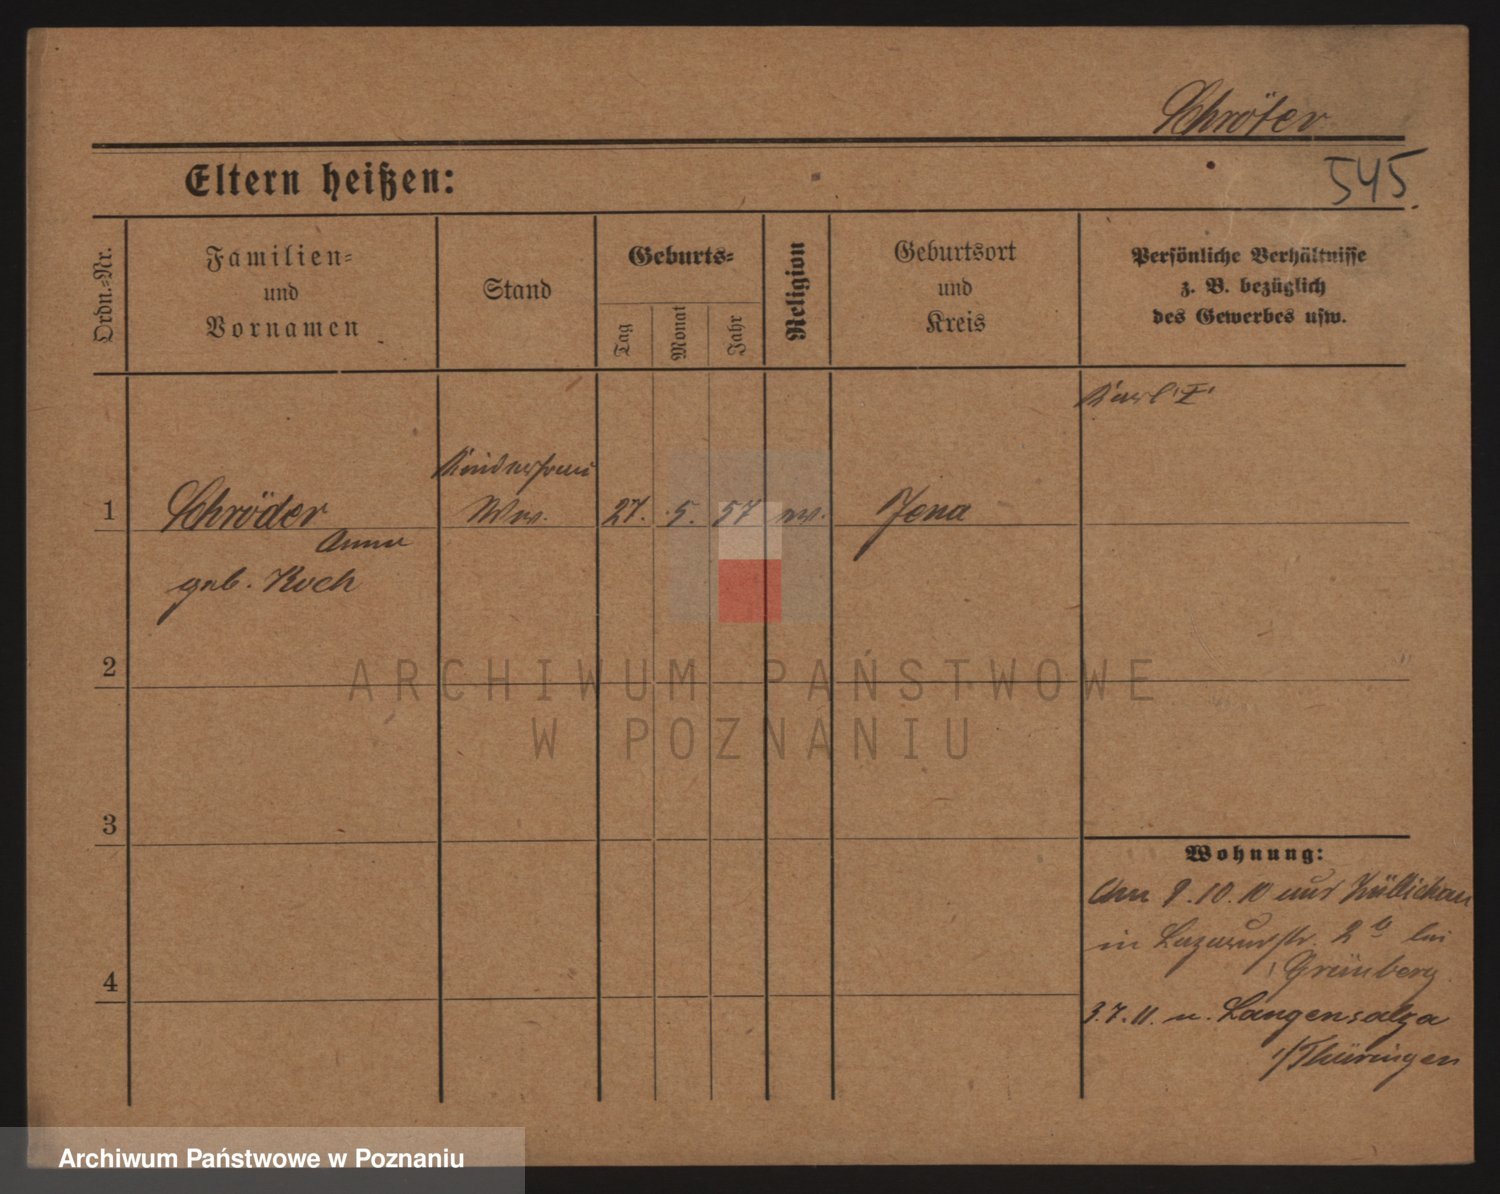 Schröter
Eltern heißen:
545.
Ordn.-Nr.
Familien-
und
Vornamen
Stand
Geburts-
Tag
Monat
Jahr
Religion
Geburtsort
und
Kreis
Persönliche Verhältnisse
z. B. bezüglich
des Gewerbes usw.
Karl I
Kinderfrau
1
Schröder
Ww.
27. 5. 57
Jena
Anna
geb. Koch
2
3
4
Wohnung:
Am 9.10.10 aus Züllichau
in Lazarusstr. 2b bei
Grünberg
3.7.11. n. Langensalza
i/Thüringen
ARCHIWUM PAŃSTWOWE
W POZNANIU
Archiwum Państwowe w Poznaniu